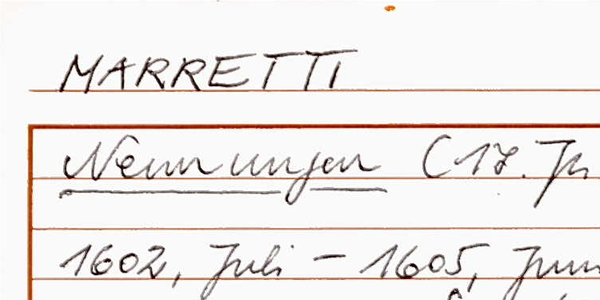 MARRETTI
Nennungen (17. Jh
1602, Juli - 1605, Juni